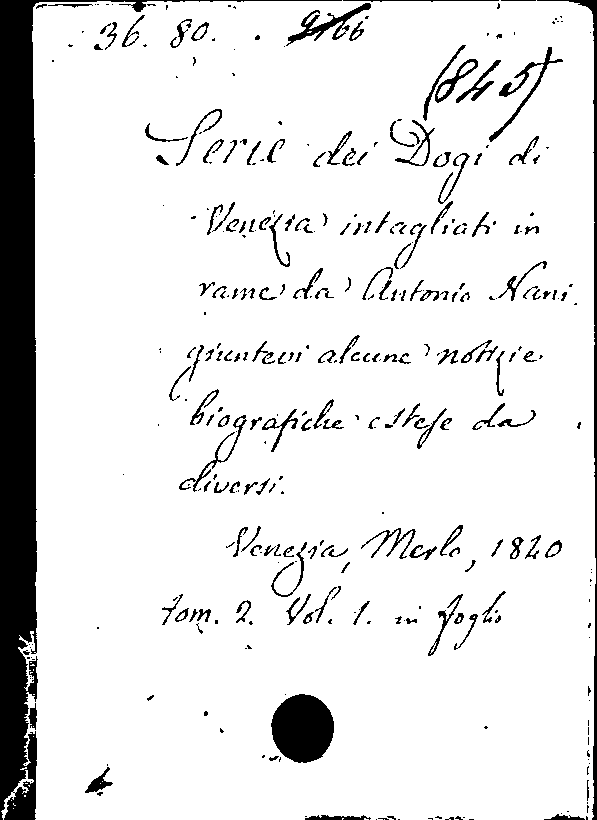 36. 80. 9766
(845)
Serie dei Dogi di
Venezia intagliati in
rame da Antonio Nani
giuntevi alcune notizie
biografiche estese da
diversi.
Venezia, Merlo, 1840
tom. 2. Vol. 1. in foglio